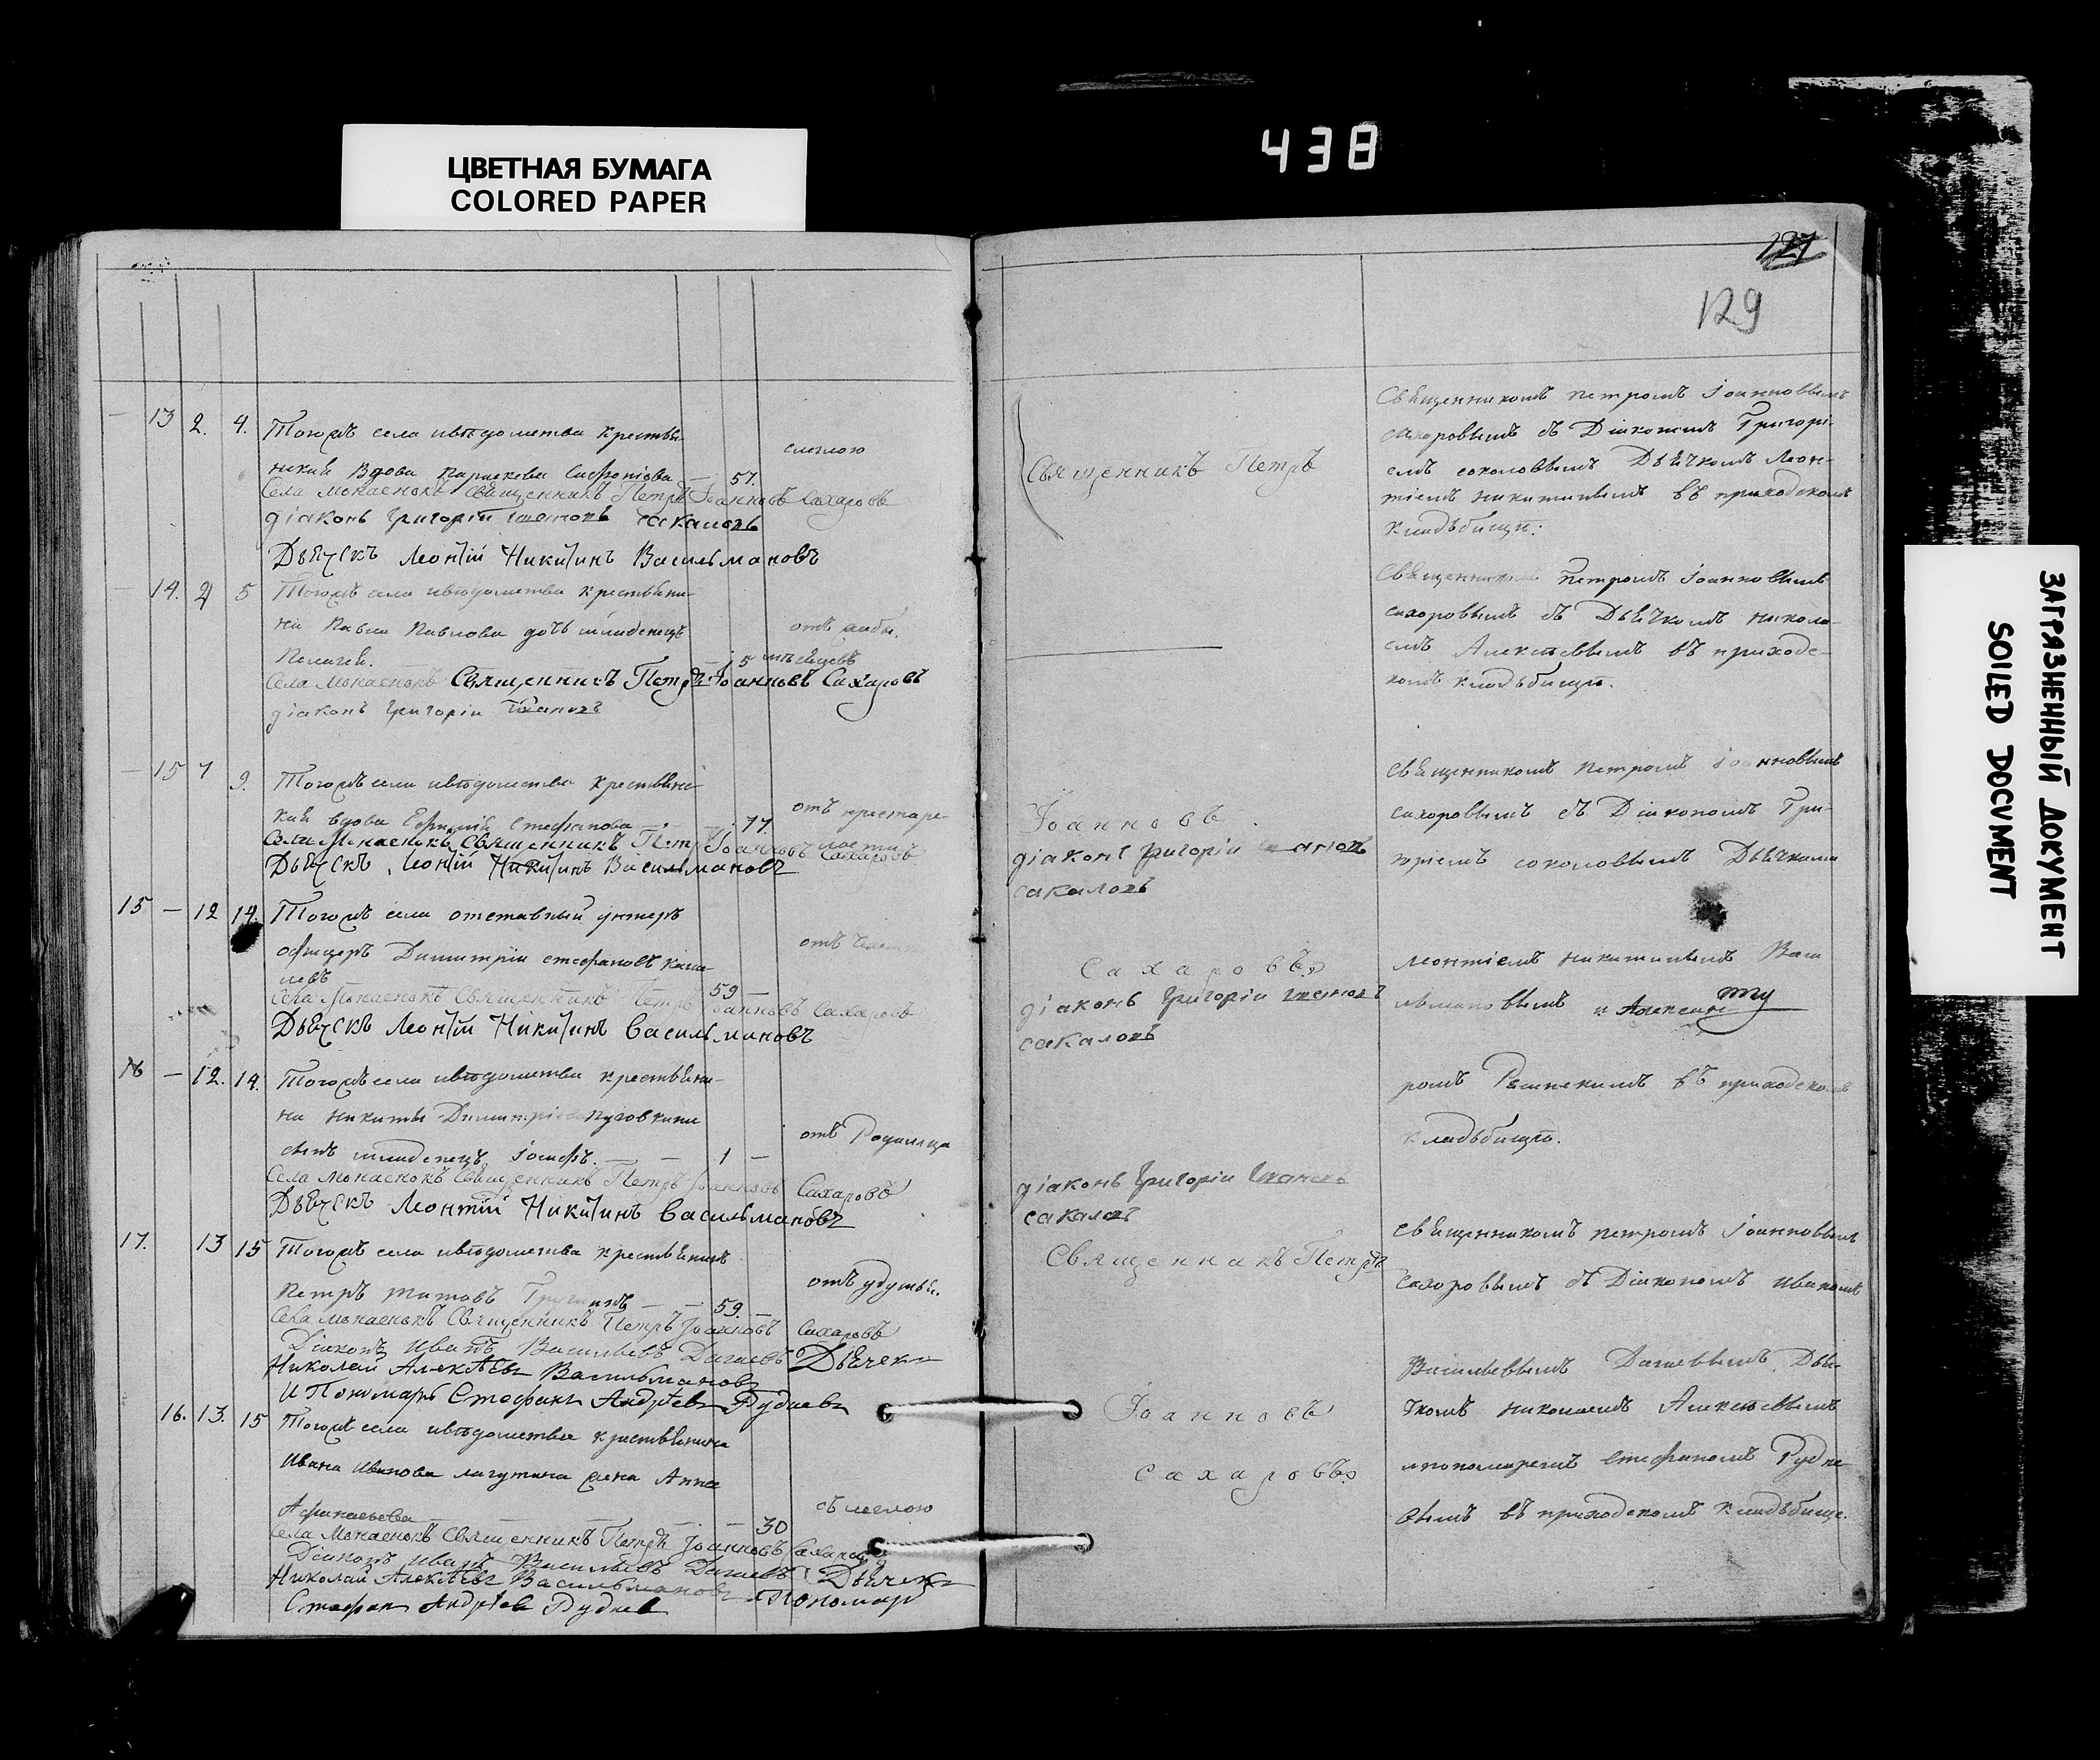 ЦВЕТНАЯ БУМАГА
COLORED PAPER
438
ЗАГРЯЗНЕННЫЙ ДОКУМЕНТ
SOILED DOCUMENT
127
129
13 2. 4. Тогожъ села и вѣдомства крестьян-
ская вдова Параскева Софронiова — 57.
Села Монаенокъ Священникъ Петръ Iоанновъ Сахаровъ
дiаконъ Григорiй сакаловъ
Дьячекъ Леонтiй Никитинъ Васильмановъ
14. 2 5 Тогожъ села и вѣдомства крестьяни-
на Павла Павлова дочь младенецъ
Пелагея. 5
Села Монаенокъ Священникъ Петръ Iоанновъ Сахаровъ
дiаконъ Григорiи
15 7 9. Тогожъ села и вѣдомства крестьянс-
кая вдова Стефанова — 77.
отъ престаре-
лости
Села Монаенокъ Священникъ Петръ Iоанновъ Сахаровъ
Дьячекъ Леонтiй Никитинъ Васильмановъ
15 — 12 14. Тогожъ села отставный унтеръ
офицеръ Димитрiи Стефановъ
59 —
Села Монаенокъ Священникъ Петръ Iоанновъ Сахаровъ
Дьячекъ Леонтiй Никитинъ Васильмановъ
16 — 12. 14. Тогожъ села и вѣдомства крестьяни-
на Никиты Димитрiева Пуговкина
отъ Родимца
сынъ младенецъ Iосифъ. — — 1 —
Села Монаенокъ Священникъ Петръ Iоанновъ Сахаровъ
Дьячекъ Леонтiй Никитинъ Васильмановъ
17. 13 15 Тогожъ села и вѣдомства крестьянинъ
отъ удушья.
Петръ Титовъ — — 59. —
Села Монаенокъ Священникъ Петръ Iоанновъ Сахаровъ
Дiаконъ Иванъ Васильевъ Дагаевъ Дьячекъ
Николай Алексѣевъ Васильмановъ
И Пономарь Стефанъ Андрѣевъ Рудневъ
16. 13. 15 Тогожъ села и вѣдомства крестьянина
Ивана Иванова Лагутина жена Анна
Афанасьева — — — 30
Села Монаенокъ Священникъ Петръ Iоанновъ Сахаровъ
Дiаконъ Иванъ Васильевъ Дагаевъ Дьячекъ
Николай Алексѣевъ Васильмановъ Пономарь
Стефанъ Андрѣевъ Руднев
Священникъ Петръ
Iоанновъ
дiаконъ Григорiи
сакаловъ
Сахаровъ
дiаконъ Григорiи
сакаловъ
дiаконъ Григорiи
сакаловъ
Священникъ Петръ
Iоанновъ
Сахаровъ
Священникомъ Петромъ Iоанновымъ
Сахоровымъ съ Дiакономъ Григорi-
емъ Соколовымъ Дьячкомъ Леон-
тiемъ Никитинымъ въ приходскомъ
кладьбищѣ.
Священникомъ Петромъ Iоанновымъ
Сахоровымъ съ Дьячкомъ Никола-
емъ Алексѣевымъ въ приходс-
комъ кладьбищѣ.
Священникомъ Петромъ Iоанновымъ
Сахоровымъ съ Дiакономъ Гри-
горiемъ Соколовымъ Дьячками
Леонтiемъ Никитинымъ Васи
льмановымъ и
въ приходскомъ
кладьбищѣ.
Священникомъ Петромъ Iоанновымъ
Сахоровымъ съ Дiакономъ Иваномъ
Васильевымъ Дагаевымъ Дья-
чкомъ Николаемъ Алексѣевымъ
и пономаремъ Стефаномъ Рудне-
вымъ въ приходскомъ кладьбище.